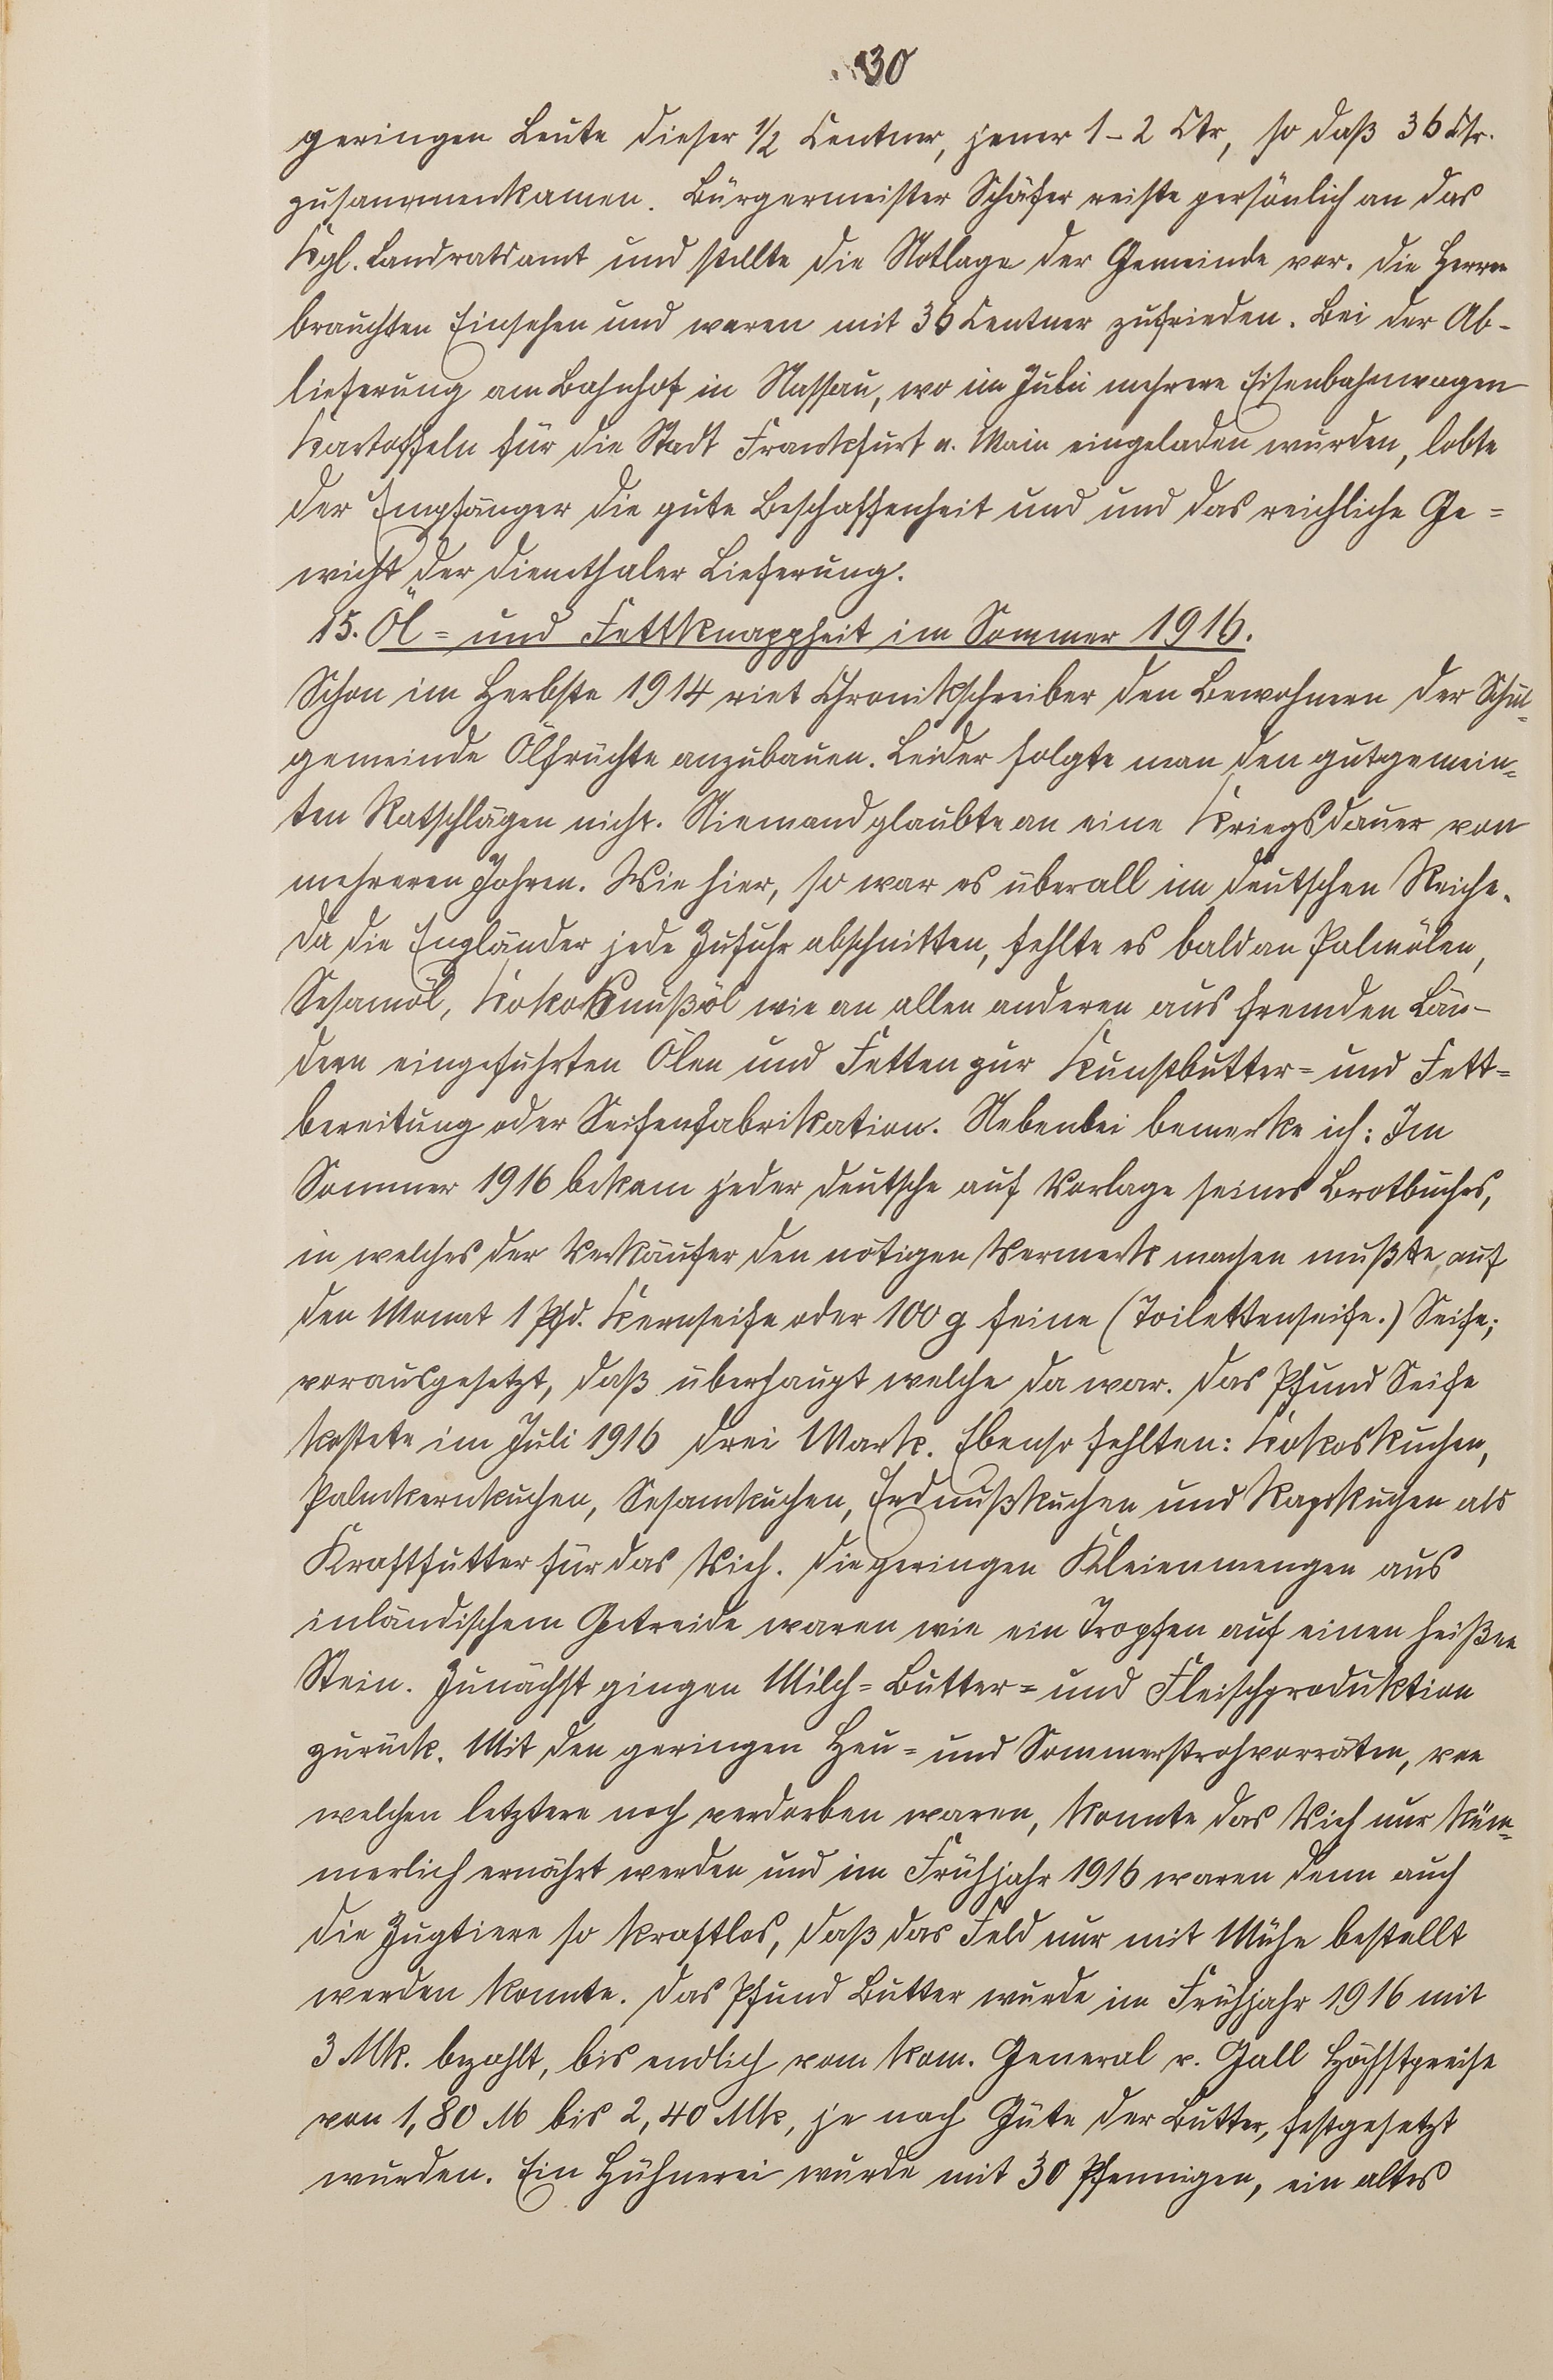 30
geringen Leute dieser ½ Centner, jener 1–2 Ctr, so daß 36 Ctr.
zusammenkamen. Bürgermeister Schäfer reiste persönlich an das
Kgl. Landratsamt und stellte die Notlage der Gemeinde vor. Die Herren
brauchten Einsehen und waren mit 36 Centner zufrieden. Bei der Ab-
lieferung am Bahnhof in Nassau, wo im Juli mehrere Eisenbahnwagen
Kartoffeln für die Stadt Frankfurt a. Main eingeladen wurden, lobte
der Empfänger die gute Beschaffenheit und und das reichliche Ge=
wicht der Dienethaler Lieferung.
15. Öl= und Fettknappheit im Sommer 1916.
Schon im Herbste 1914 riet Chronikschreiber den Bewohnern der Schul-
gemeinde Ölfrüchte anzubauen. Leider folgte man den gutgemein=
ten Ratschlägen nicht. Niemand glaubte an eine Kriegsdauer von
mehreren Jahren. Wie hier, so war es überall im deutschen Reiche.
Da die Engländer jede Zufuhr abschnitten, fehlte es bald an Palmölen,
Sesamöl, Kokosnußöl wie an allen anderen aus fremden Län-
dern eingeführten Ölen und Fetten zur Kunstbutter= und Fett=
bereitung oder Seifenfabrikation. Nebenbei bemerke ich: Im
Sommer 1916 bekam jeder Deutsche auf Vorlage seines Brotbuches,
in welches der Verkäufer den nötigen Vermerk machen mußte, auf
den Monat 1 Pfd. Kernseife oder 100 g feine (Toilettenseife.) Seife;
vorausgesetzt, daß überhaupt welche da war. Das Pfund Seife
kostete im Juli 1916 drei Mark. Ebenso fehlten: Kokoskuchen,
Palmkernkuchen, Sesamkuchen, Erdnußkuchen und Rapskuchen als
Kraftfutter für das Vieh. Die geringen Kleienmengen aus
inländischem Getreide waren wie ein Tropfen auf einen heißen
Stein. Zunächst gingen Milch= Butter= und Fleischproduktion
zurück. Mit den geringen Heu= und Sommerstrohvorräten, von
welchen letztere noch verdorben waren, konnte das Vieh nur küm=
merlich ernährt werden und im Frühjahr 1916 waren denn auch
die Zugtiere so kraftlos, daß das Feld nur mit Mühe bestellt
werden konnte. Das Pfund Butter wurde im Frühjahr 1916 mit
3 Mk. bezahlt, bis endlich vom kom. General v. Gall Höchstpreise
von 1,80 M bis 2,40 Mk, je nach Güte der Butter, festgesetzt
wurden. Ein Hühnerei wurde mit 30 Pfennigen, ein altes